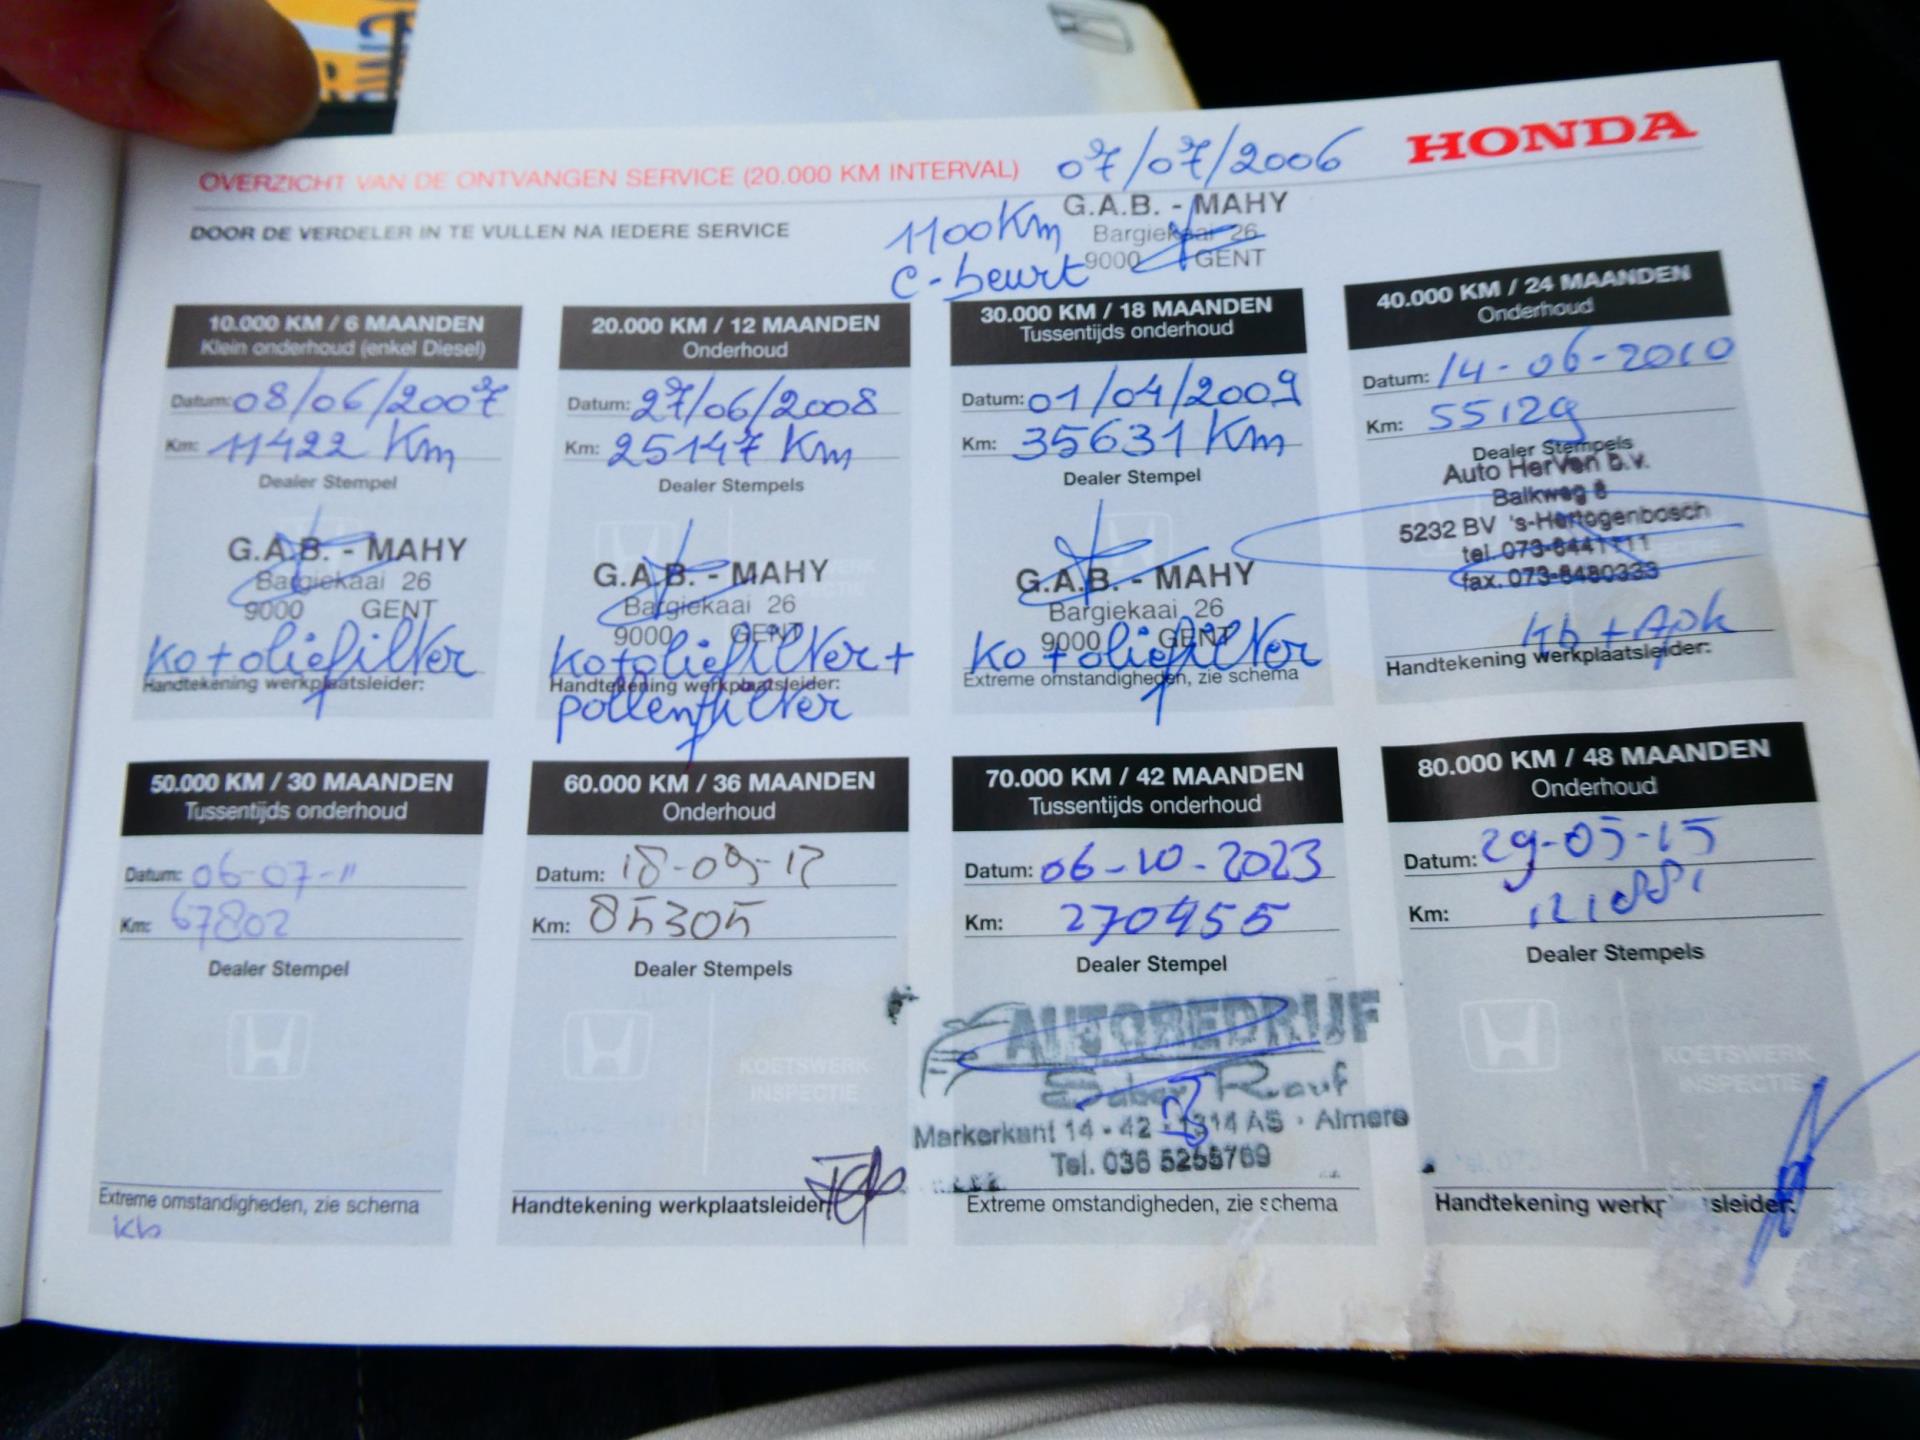 OVERZICHT VAN DE ONTVANGEN SERVICE (20.000 KM INTERVAL)
07/07/2006
HONDA
DOOR DE VERDELER IN TE VULLEN NA IEDERE SERVICE
1100 Km
C-beurt
G.A.B. - MAHY
Bargiekaai 26
9000 GENT
10.000 KM / 6 MAANDEN
Klein onderhoud (enkel Diesel)
Datum: 08/06/2007
Km: 11422 Km
Dealer Stempel
G.A.B. - MAHY
Bargiekaai 26
9000 GENT
Ko + oliefilter
Handtekening werkplaatsleider:
20.000 KM / 12 MAANDEN
Onderhoud
Datum: 27/06/2008
Km: 25147 Km
Dealer Stempels
G.A.B. - MAHY
Bargiekaai 26
9000 GENT
Ko + oliefilter +
Handtekening werkplaatsleider:
pollenfilter
30.000 KM / 18 MAANDEN
Tussentijds onderhoud
Datum: 01/04/2009
Km: 35631 Km
Dealer Stempel
G.A.B. - MAHY
Bargiekaai 26
9000 GENT
Ko + oliefilter
Extreme omstandigheden, zie schema
40.000 KM / 24 MAANDEN
Onderhoud
Datum: 14-06-2010
Km: 55129
Dealer Stempels
Auto HerVen b.v.
Balkweg 8
5232 BV 's-Hertogenbosch
tel. 073-6441111
fax. 073-6480333
kb + Apk
Handtekening werkplaatsleider:
50.000 KM / 30 MAANDEN
Tussentijds onderhoud
Datum: 06-07-11
Km: 67802
Dealer Stempel
Extreme omstandigheden, zie schema
kb
60.000 KM / 36 MAANDEN
Onderhoud
Datum: 18-09-12
Km: 85305
Dealer Stempels
KOETSWERK
INSPECTIE
Handtekening werkplaatsleider:
70.000 KM / 42 MAANDEN
Tussentijds onderhoud
Datum: 06-10-2023
Km: 270455
Dealer Stempel
AUTOBEDRIJF
Rauf
Markerkant 14 - 42 - 1314 AS · Almere
Tel. 036
Extreme omstandigheden, zie schema
80.000 KM / 48 MAANDEN
Onderhoud
Datum: 29-05-15
Km:
Dealer Stempels
KOETSWERK
INSPECTIE
Handtekening werkplaatsleider: